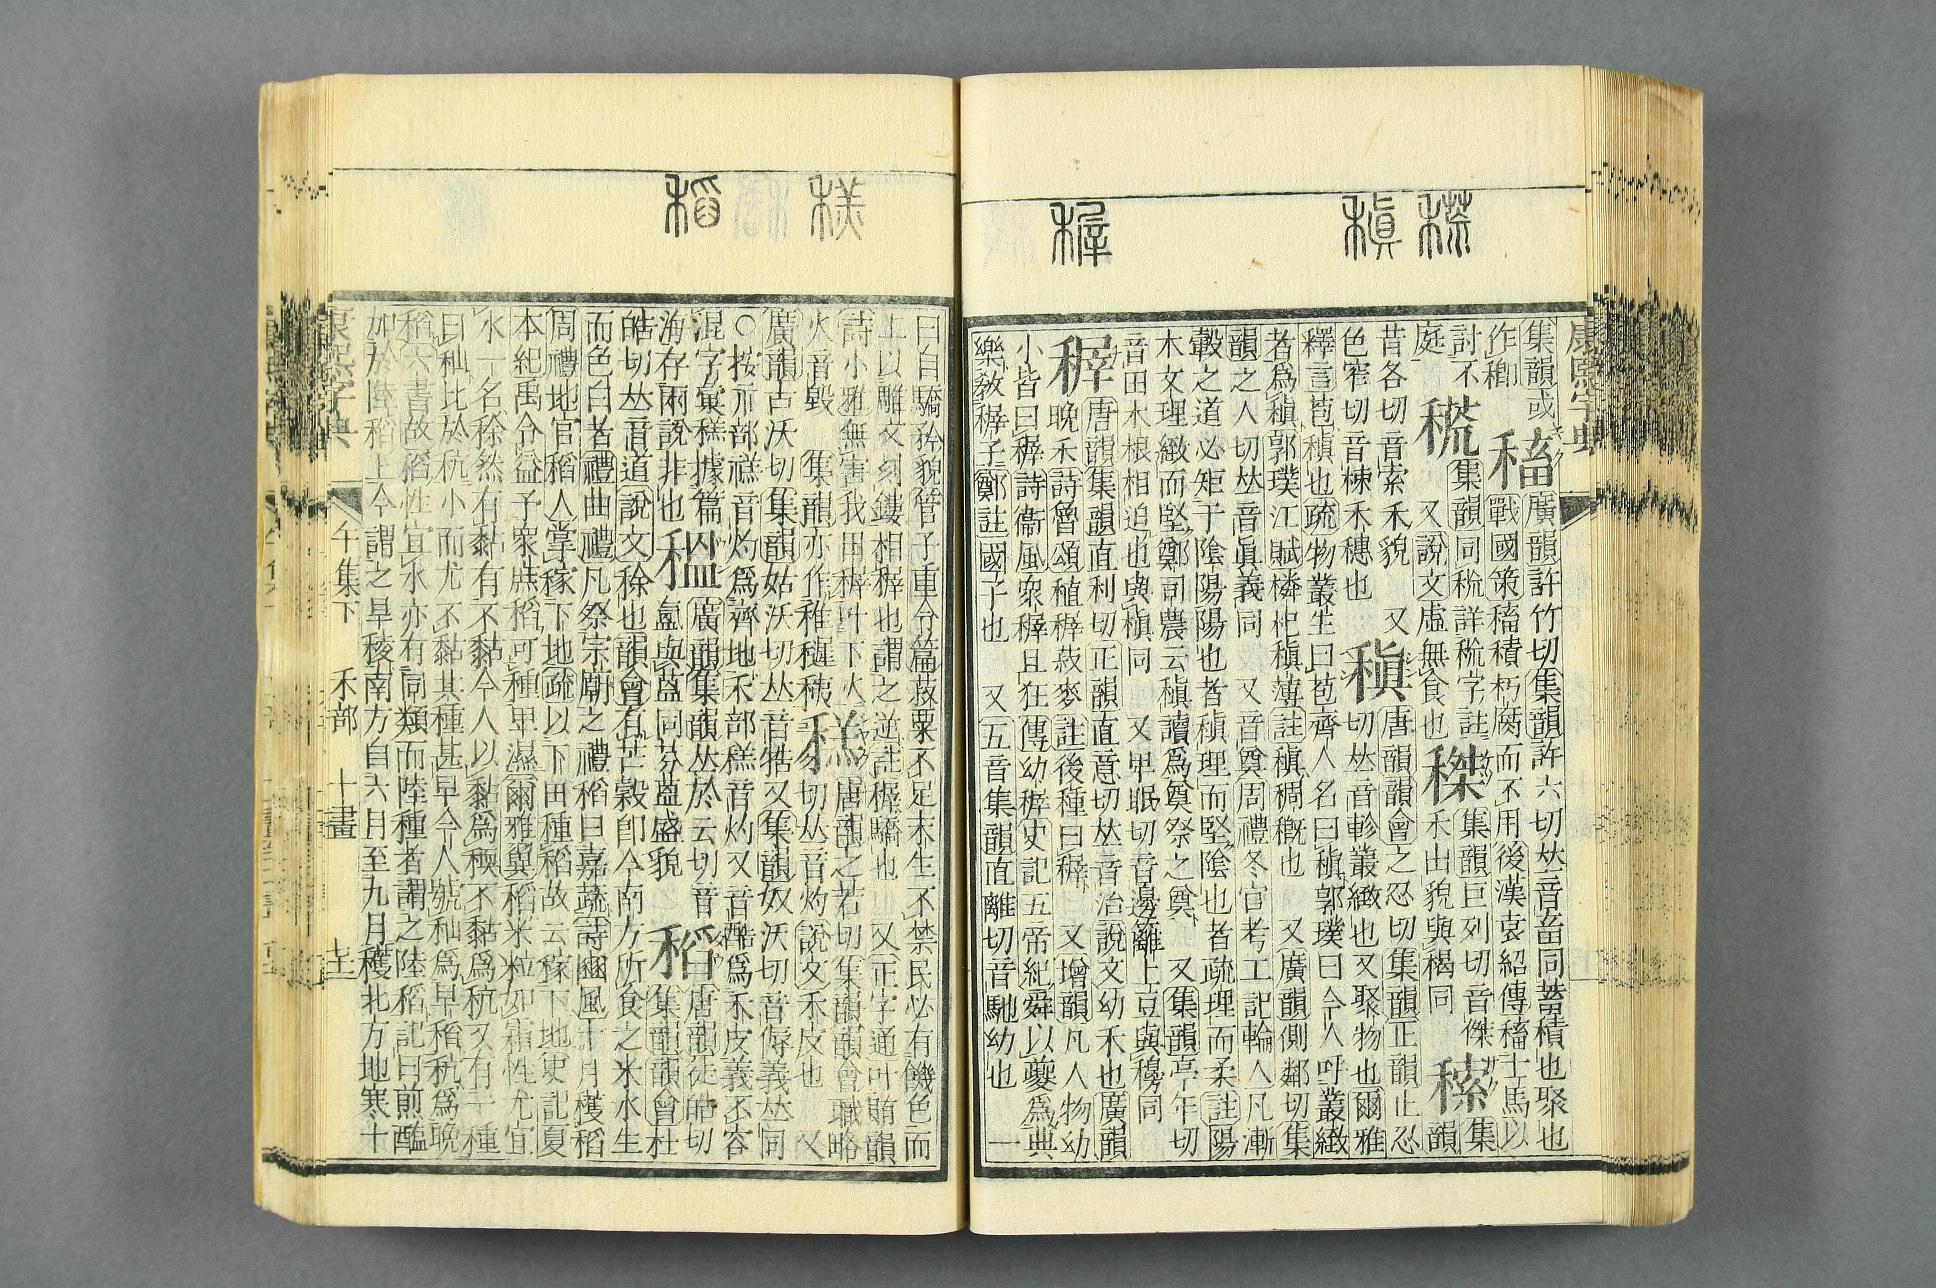 康熙字典
集韻或 廣韻許竹切集韻許六切𠀤音畜同蓄積也聚也
稸
戰國策稸積朽腐而不用後漢袁紹傳稸士馬以
討不 集韻同 集韻巨列切音傑 集
庭 又說文虛無食也 禾出貌與楬同 韻
昔各切音索禾貌 又 唐韻韻會之忍切集韻正韻止忍
色窄切音栜禾穗也 稹 切𠀤音軫叢緻也又聚物也爾雅
釋言苞稹也疏物叢生曰苞齊人名曰稹郭璞曰今人呼叢緻
者爲稹郭璞江賦橉杞稹薄註稹稠概也 又廣韻側鄰切集
韻之人切𠀤音眞義同 又音奠周禮冬官考工記輪人凡漸
轂之道必矩于陰陽陽也者稹理而堅陰也者疏理而柔註陽
木文理緻而堅鄭司農云稹讀爲奠祭之奠 又集韻亭年切
音田木根相迫也與槇同 又甲眠切音邊籬上豆與穆同
稺 唐韻集韻直利切正韻直意切𠀤音治說文幼禾也廣韻
晚禾詩魯頌植稺菽麥註後種曰稺 又增韻凡人物幼
小皆曰稺詩衞風衆稺且狂傳幼稺史記五帝紀舜以夔爲典
樂敎稺子鄭註國子也 又五音集韻直離切音馳幼也 一
曰自驕矜貌管子重令篇菽粟不足末生不禁民必有饑色而
上以雕文刻鏤相稺也謂之逆註稺驕也 又正字通叶賄韻
詩小雅無害我田稺叶下火 唐韻之若切集韻韻會職略
火音毀 集韻亦作稚 穚 切𠀤音灼說文禾皮也 又
廣韻古沃切集韻姑沃切𠀤音牿又集韻奴沃切音傉義𠀤同
○按示部禚音灼爲齊地禾部穚音灼又音酷爲禾皮義不容
混字彙 廣韻集韻𠀤於云切音
海存兩說非也 與 同芬 盛貌
稻 唐韻徒皓切
集韻韻會杜
皓切𠀤音道說文稌也韻會有芒穀卽今南方所食之米水生
而色白者禮曲禮凡祭宗廟之禮稻曰嘉蔬詩豳風十月穫稻
周禮地官稻人掌稼下地疏以下田種稻故云稼下地史記夏
本紀禹令益予衆庶稻可種卑濕爾雅翼稻米粒如霜性尤宜
水一名稌然有黏有不黏今人以黏爲稬不黏爲秔又有一種
曰秈比於秔小而尤不黏其種甚早今人號秈爲早稻秔爲晚
稻六書故稻性宜水亦有同類而陸種者謂之陸稻記曰煎醢
加於陸稻上今謂之旱稜南方自六月至九月穫北方地寒十
康熙字典 午集下 禾部 十畫